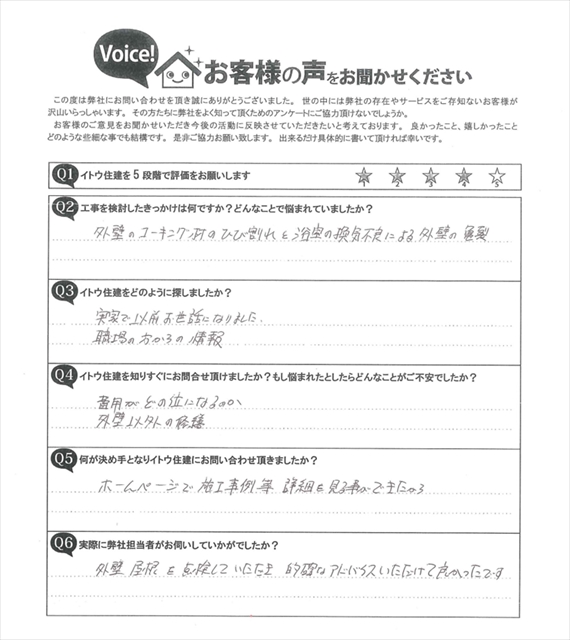 Voice!
お客様の声をお聞かせください
この度は弊社にお問い合わせを頂き誠にありがとうございました。 世の中には弊社の存在やサービスをご存知ないお客様が
沢山いらっしゃいます。 その方たちに弊社をよく知って頂くためのアンケートにご協力頂けないでしょうか。
お客様のご意見をお聞かせいただき今後の活動に反映させていただきたいと考えております。 良かったこと、嬉しかったこと
どのような些細な事でも結構です。 是非ご協力お願い致します。 出来るだけ具体的に書いて頂ければ幸いです。
Q1 イトウ住建を5段階で評価をお願いします
1 2 3 4 5
Q2 工事を検討したきっかけは何ですか？どんなことで悩まれていましたか？
外壁のコーキング材のひび割れと浴室の換気不良による外壁の亀裂
Q3 イトウ住建をどのように探しましたか？
実家で以前お世話になりました。
職場の方からの情報
Q4 イトウ住建を知りすぐにお問合せ頂けましたか？もし悩まれたとしたらどんなことがご不安でしたか？
費用がどの位になるのか
外壁以外の修繕
Q5 何が決め手となりイトウ住建にお問い合わせ頂きましたか？
ホームページで施工事例等 詳細を見る事ができたから
Q6 実際に弊社担当者がお伺いしていかがでしたか？
外壁 屋根を点検していただき 的確なアドバイスいただけて良かったです